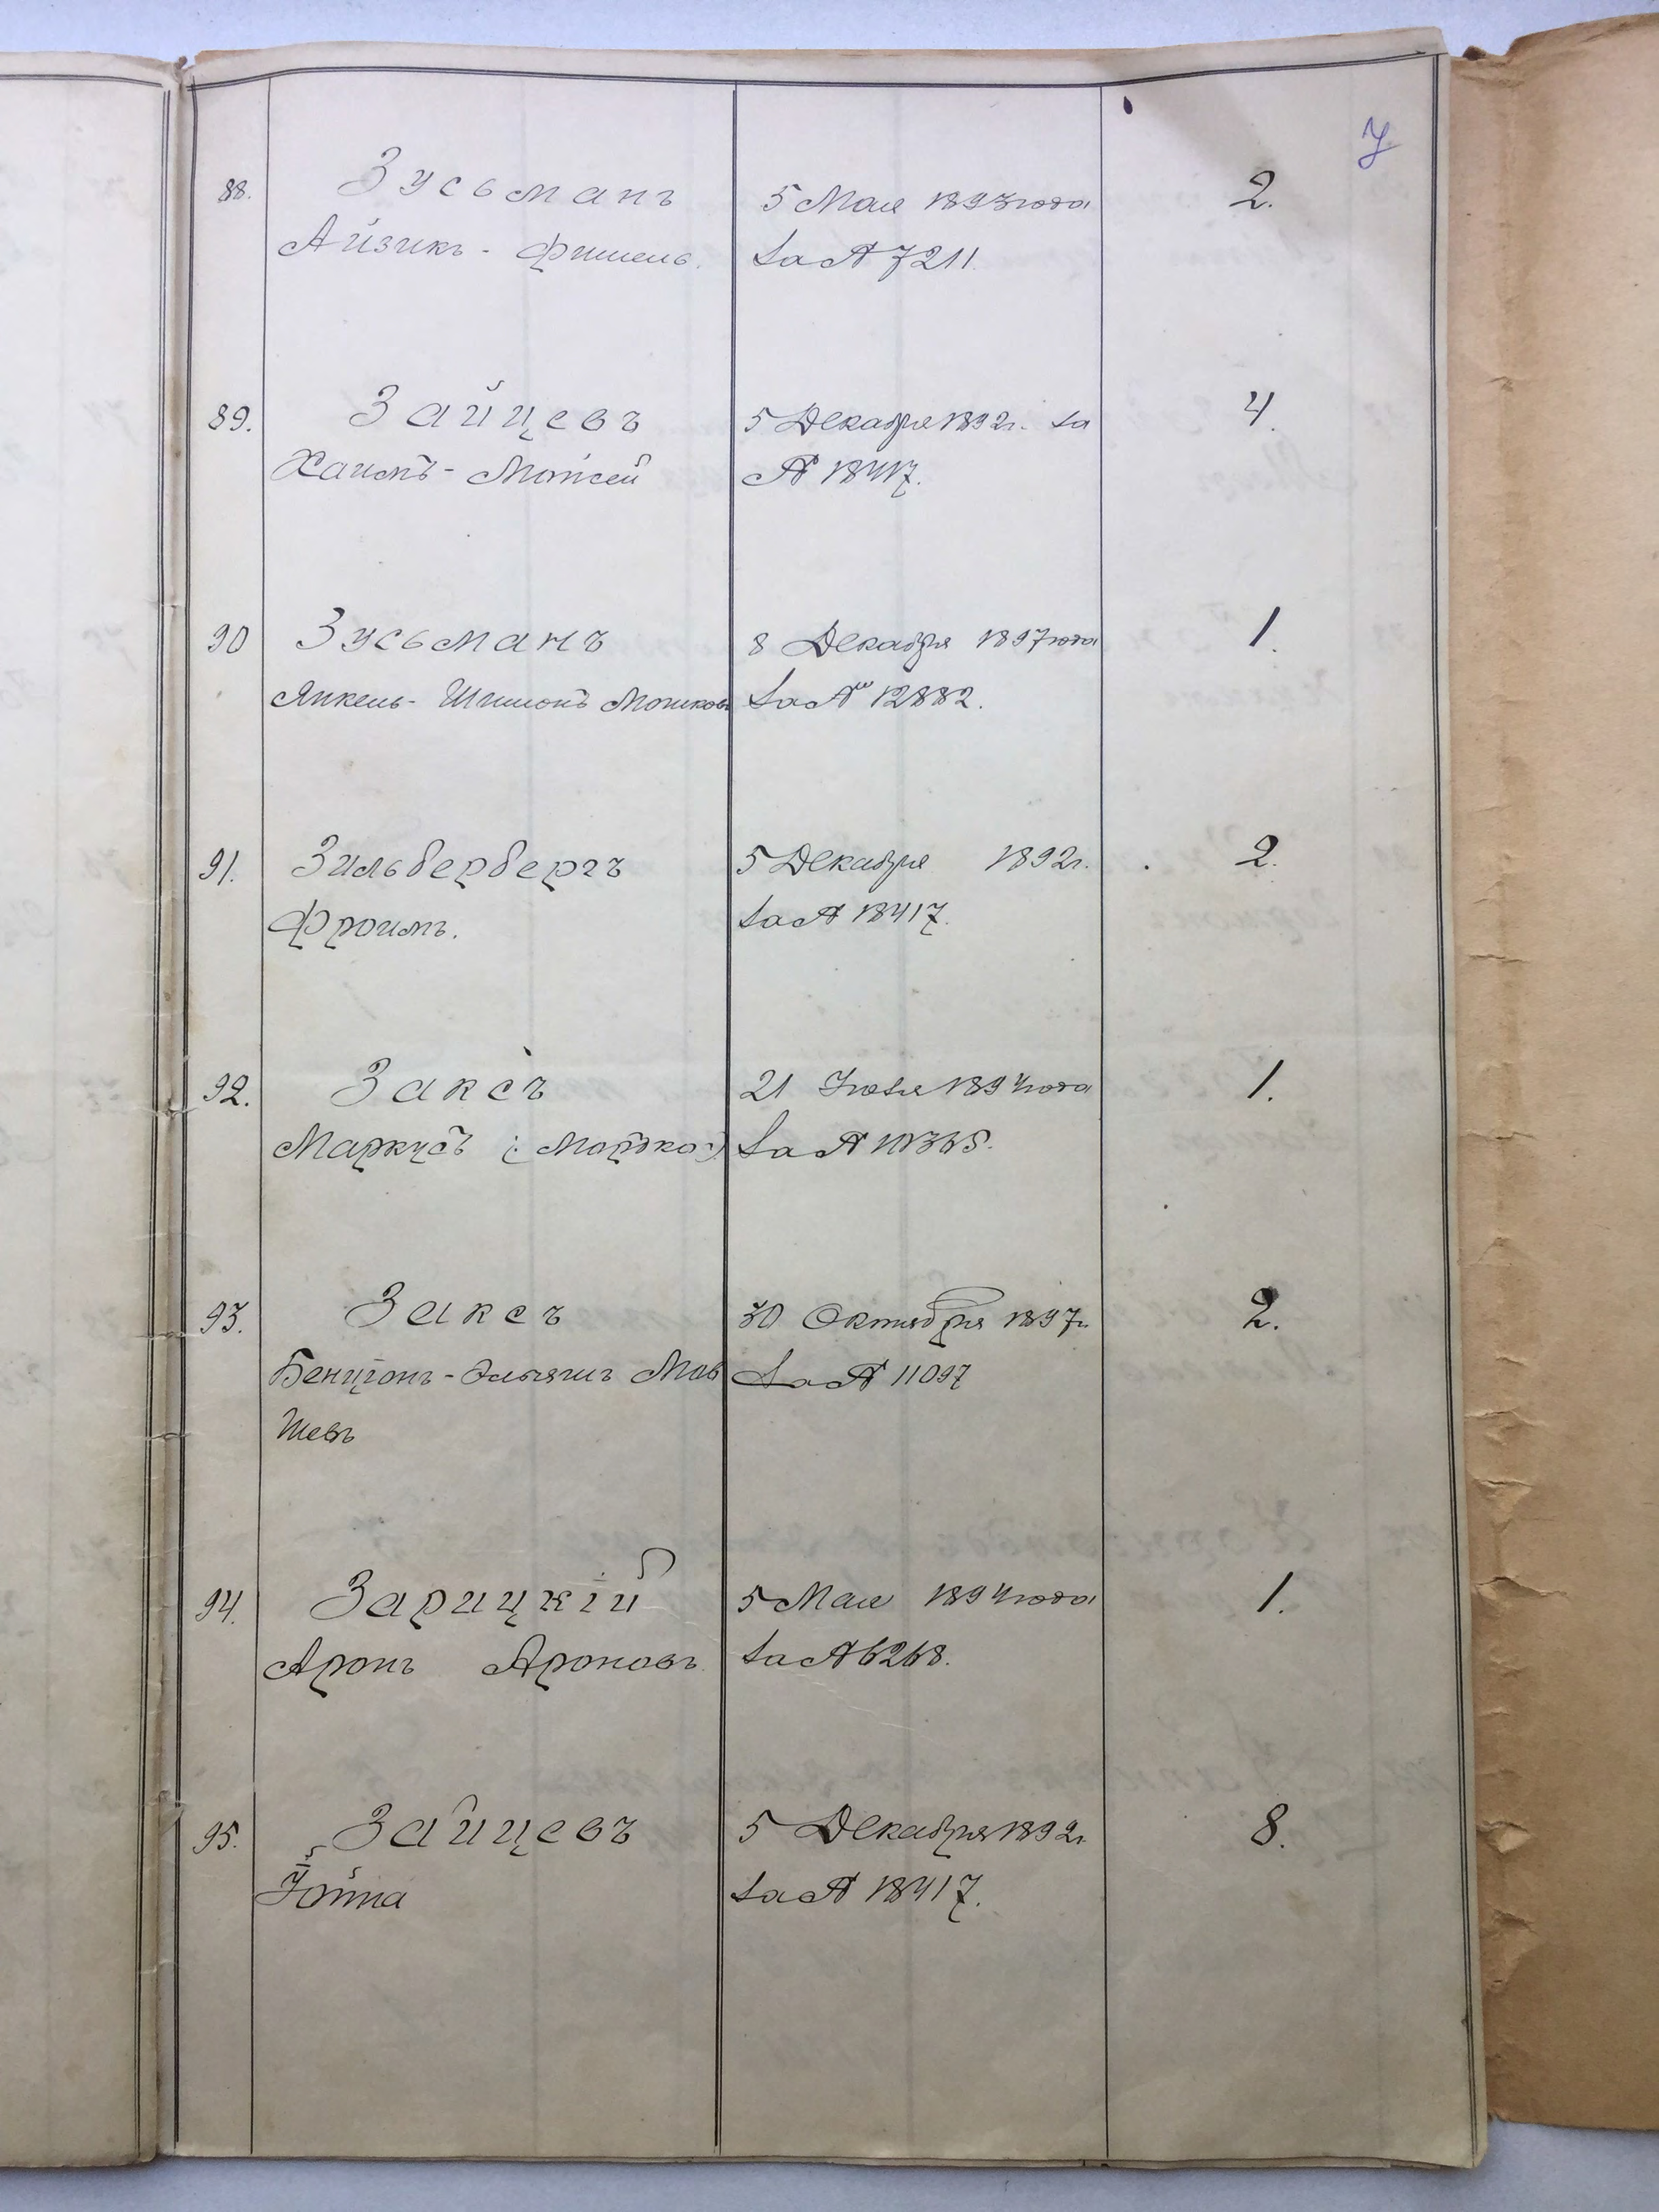 7
88. Зусьманъ 5 Мая 1893 года 2.
Айзикъ - Фишель. за № 7211.
89. Зайцевъ 5 Декабря 1892г. за 4.
Хаимъ - Мойсей № 18417.
90 Зусьманъ 8 Декабря 1897 года 1.
Янкель - Шимонъ Мошков за № 12882.
91. Зильбербергъ 5 Декабря 1892г. 2.
Фроимъ. за № 18417.
92. Заксъ 21 Іюля 1894 года 1.
Маркусъ (:Мордко:) за №
93. Заксъ 30 Октября 1897г. 2.
Бенціонъ - Мов за № 11097
шевъ
94. Зарицкій 5 Мая 1894 года 1.
Аронъ Ароновъ за № 6268.
95. Зайцевъ 5 Декабря 1892г. 8.
за № 18417.